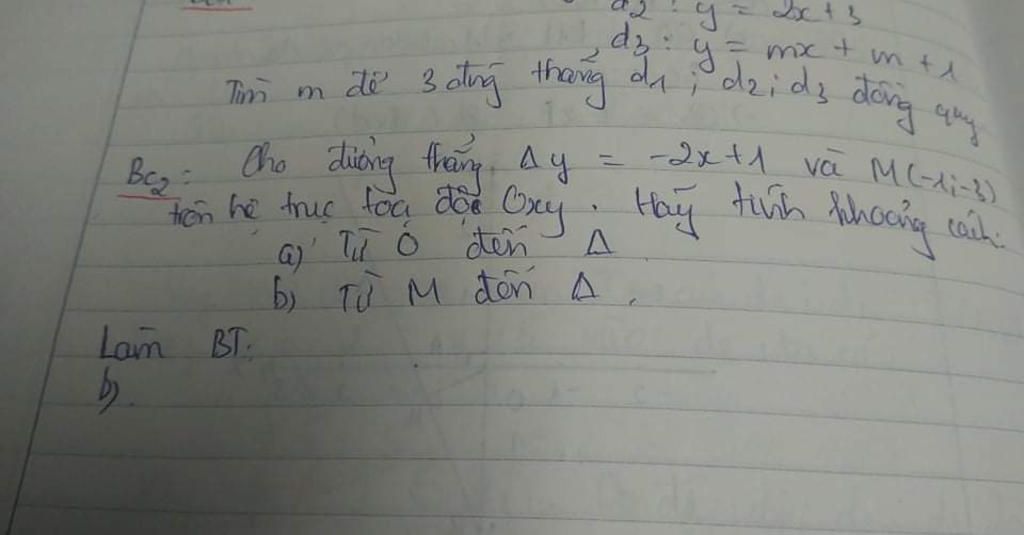 d2 : y = 2x + 3
d3 : y = mx + m + 1
Tìm m để 3 đtg thẳng d1 ; d2 ; d3 đồng quy
Bc2 : Cho đường thẳng Δ y = -2x + 1 và M(-1; -3)
trên hệ trục toạ độ Oxy . Hãy tính khoảng cách:
a) Từ O đến Δ
b) Từ M đến Δ .
Làm BT:
b)